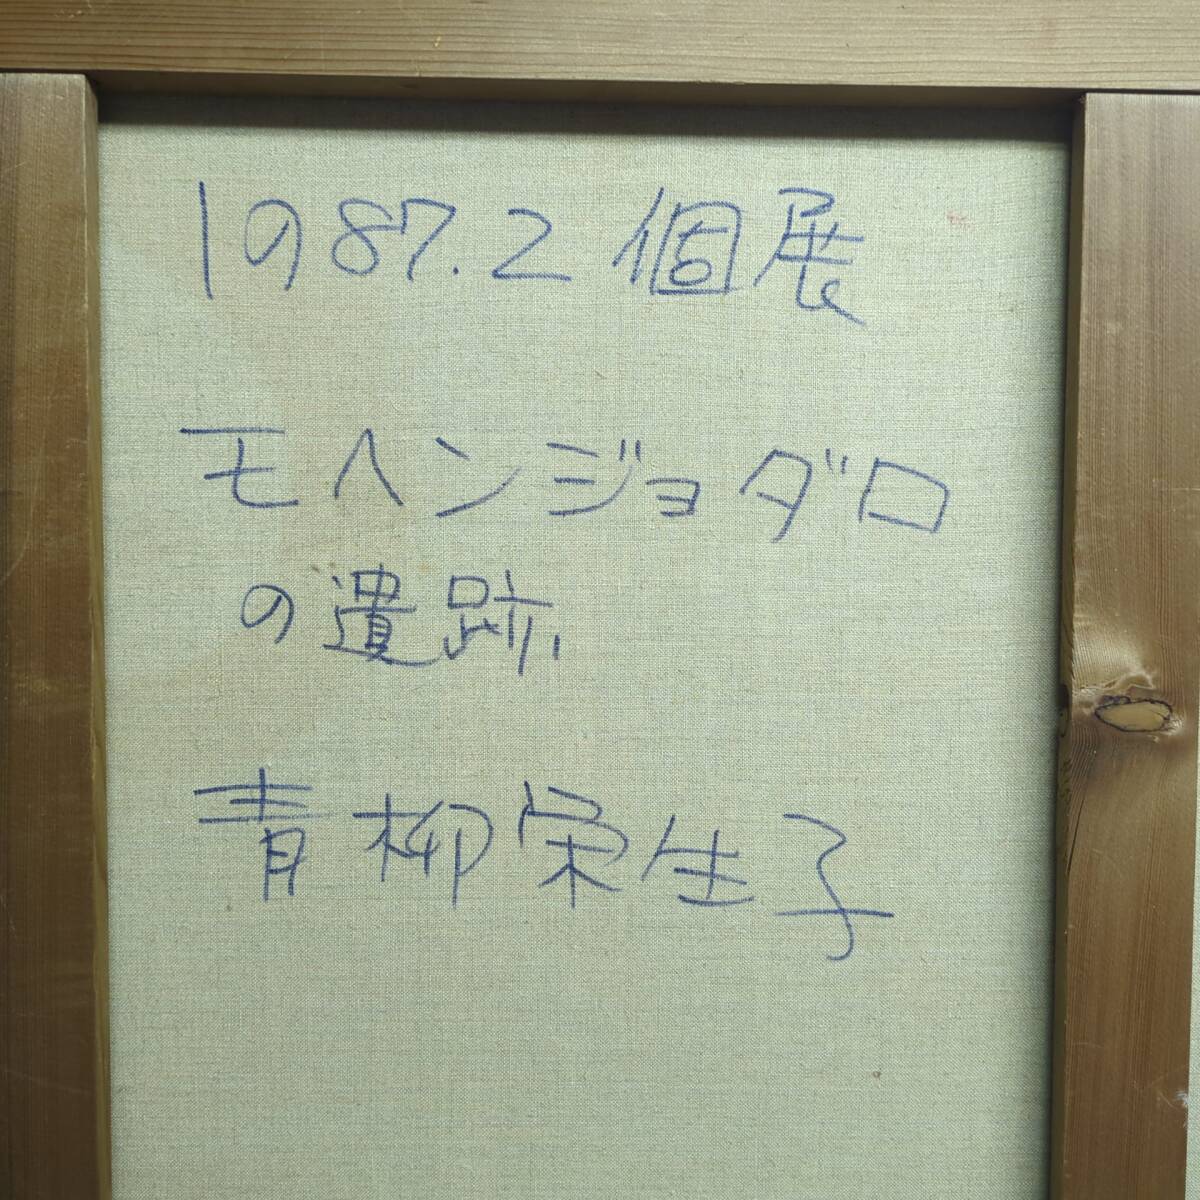 1987.2 個展
モヘンジョダロ
の遺跡
青柳栄生子